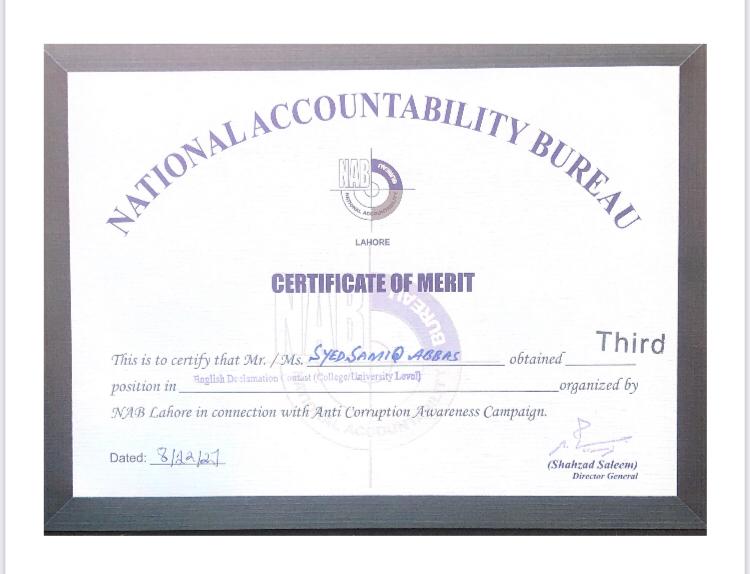 NATIONAL ACCOUNTABILITY BUREAU
NAB
BUREAU
NATIONAL ACCOUNTABILITY
LAHORE
CERTIFICATE OF MERIT
This is to certify that Mr. / Ms. SYED SAMI@ ABBAS obtained Third
position in English Declamation Contast (College/University Level) organized by
NAB Lahore in connection with Anti Corruption Awareness Campaign.
Dated: 8/12/21
(Shahzad Saleem)
Director General